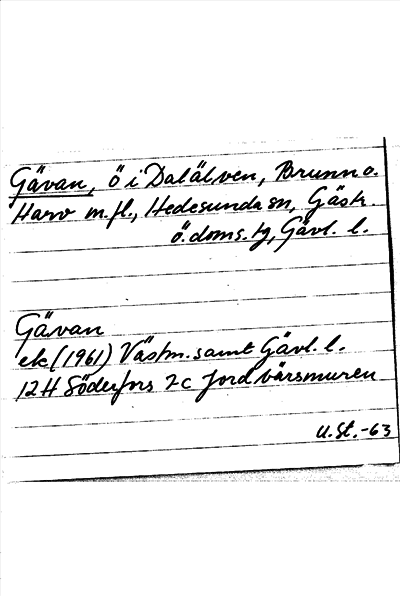 Gävan, ö i Dalälven, Brunn o.
Harv m.fl., Hedesunda sn, Gästr.
ö. doms. tg, Gävl. l.
Gävan
ek (1961) Västm. samt Gävl. l.
12H Söderfors 7c Jordbärsmuren
U.St.-63